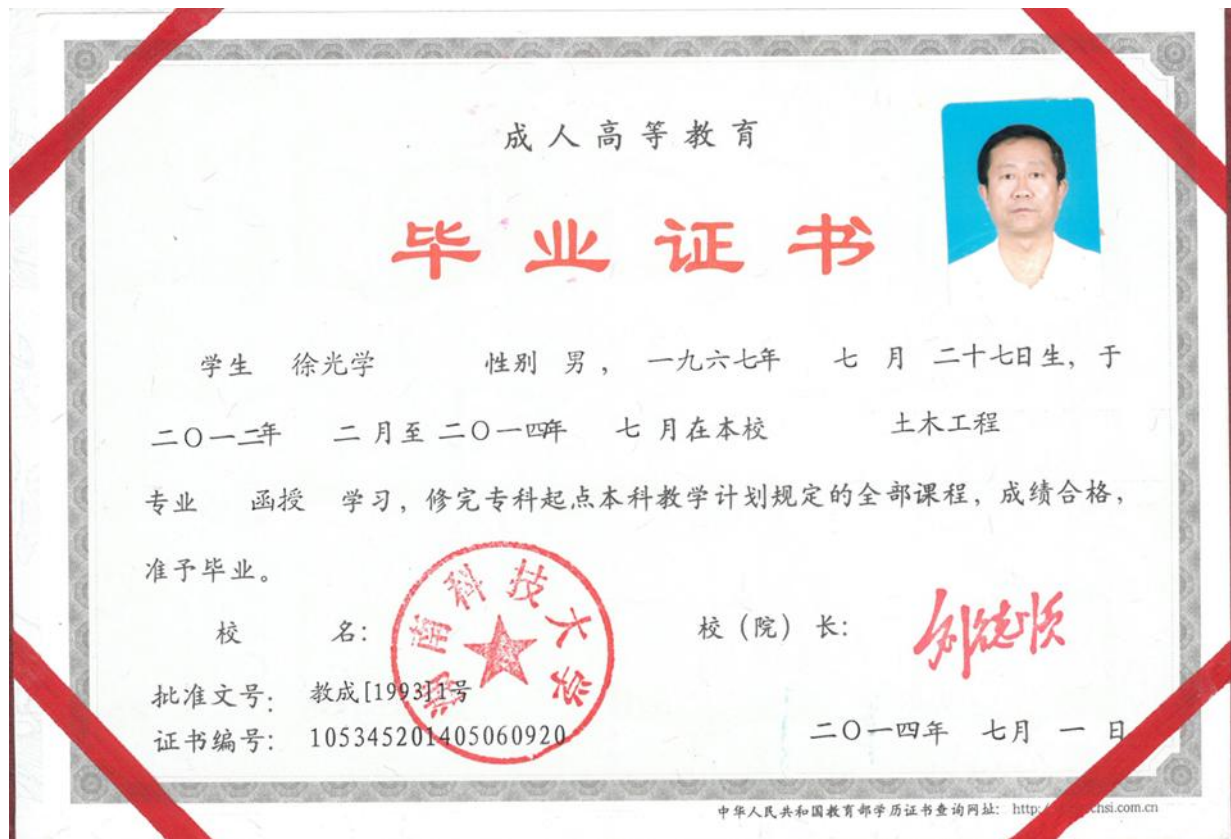 成人高等教育
毕业证书
学生 徐光学 性别 男， 一九六七年 七 月 二十七日生，于
二〇一二年 二 月至 二〇一四年 七 月在本校 土木工程
专业 函授 学习，修完专科起点本科教学计划规定的全部课程，成绩合格，
准予毕业。
校 名： 湖南科技大学 校（院）长： 刘德顺
批准文号： 教成[1993]1号
证书编号： 105345201405060920
二〇一四年 七月 一 日
中华人民共和国教育部学历证书查询网址： http:/ chsi.com.cn